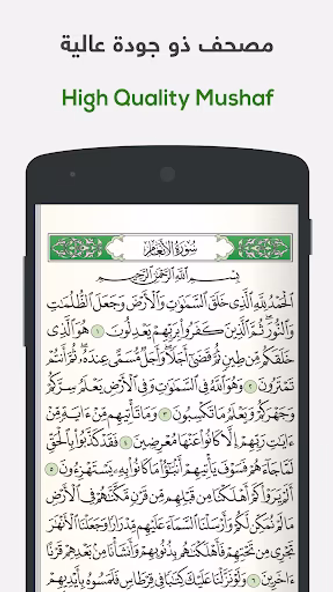 مصحف ذو جودة عالية
High Quality Mushaf
سُورَةُ الأَنْعَامِ
بِسْمِ ٱللَّهِ ٱلرَّحْمَٰنِ ٱلرَّحِيمِ
ٱلْحَمْدُ لِلَّهِ ٱلَّذِى خَلَقَ ٱلسَّمَٰوَٰتِ وَٱلْأَرْضَ وَجَعَلَ ٱلظُّلُمَٰتِ
وَٱلنُّورَ ثُمَّ ٱلَّذِينَ كَفَرُوا۟ بِرَبِّهِمْ يَعْدِلُونَ ١ هُوَ ٱلَّذِى
خَلَقَكُم مِّن طِينٍ ثُمَّ قَضَىٰٓ أَجَلًا وَأَجَلٌ مُّسَمًّى عِندَهُۥ ثُمَّ أَنتُمْ
تَمْتَرُونَ ٢ وَهُوَ ٱللَّهُ فِى ٱلسَّمَٰوَٰتِ وَفِى ٱلْأَرْضِ يَعْلَمُ سِرَّكُمْ
وَجَهْرَكُمْ وَيَعْلَمُ مَا تَكْسِبُونَ ٣ وَمَا تَأْتِيهِم مِّنْ ءَايَةٍ مِّنْ
ءَايَٰتِ رَبِّهِمْ إِلَّا كَانُوا۟ عَنْهَا مُعْرِضِينَ ٤ فَقَدْ كَذَّبُوا۟ بِٱلْحَقِّ
لَمَّا جَآءَهُمْ فَسَوْفَ يَأْتِيهِمْ أَنۢبَٰٓؤُا۟ مَا كَانُوا۟ بِهِۦ يَسْتَهْزِءُونَ ٥
أَلَمْ يَرَوْا۟ كَمْ أَهْلَكْنَا مِن قَبْلِهِم مِّن قَرْنٍ مَّكَّنَّٰهُمْ فِى ٱلْأَرْضِ
مَا لَمْ نُمَكِّن لَّكُمْ وَأَرْسَلْنَا ٱلسَّمَآءَ عَلَيْهِم مِّدْرَارًا وَجَعَلْنَا ٱلْأَنْهَٰرَ
تَجْرِى مِن تَحْتِهِمْ فَأَهْلَكْنَٰهُم بِذُنُوبِهِمْ وَأَنشَأْنَا مِنۢ بَعْدِهِمْ قَرْنًا
ءَاخَرِينَ ٦ وَلَوْ نَزَّلْنَا عَلَيْكَ كِتَٰبًا فِى قِرْطَاسٍ فَلَمَسُوهُ بِأَيْدِيهِمْ